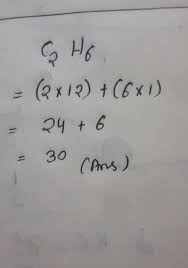 C₂ H₆
= (2×12) + (6×1)
= 24 + 6
= 30 (Ans)